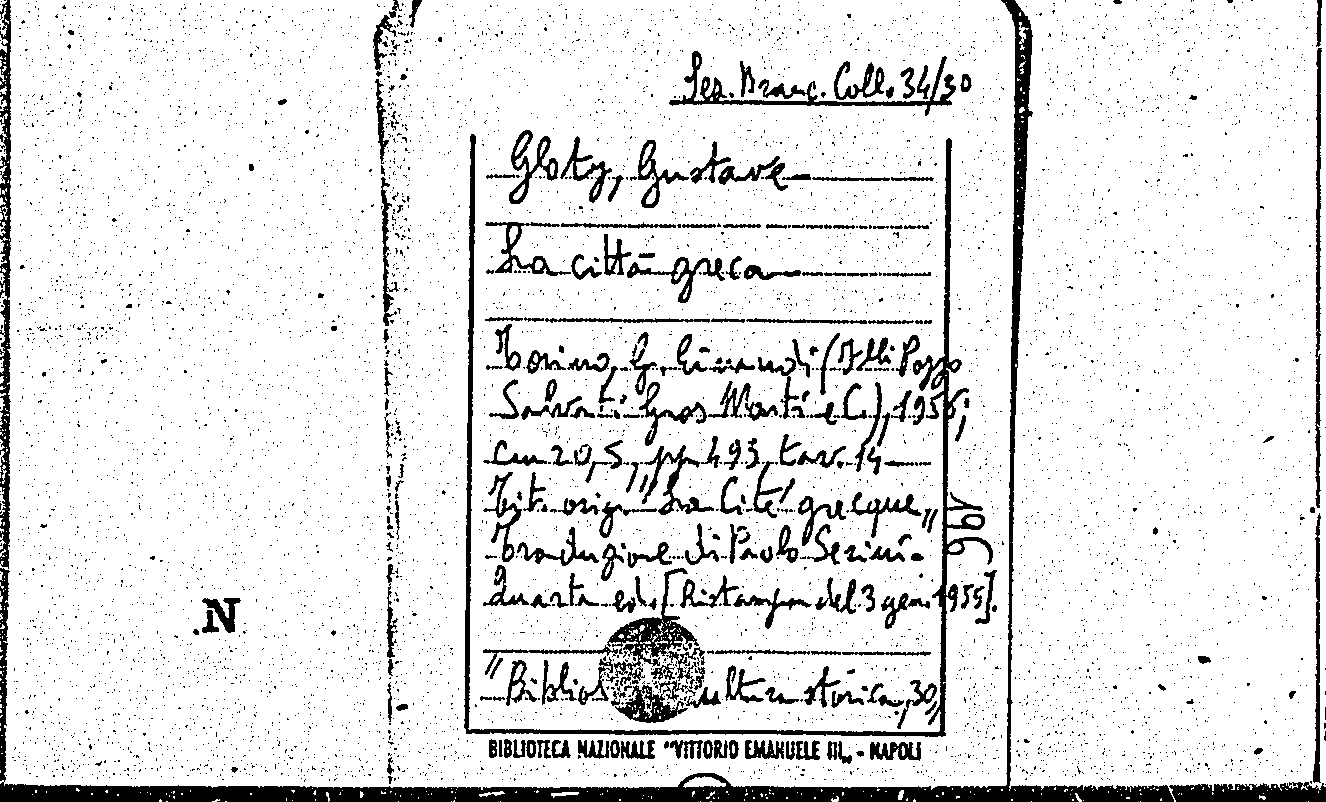 Sez. Branc. Coll. 34/30
Glotz, Gustave
La città greca
Torino, G. Einaudi (F.lli Pozzo
Salvati Gros Monti e C.), 1955;
cm 20,5, pp. 493, tav. 14
Tit. orig. "La Cité grecque„
Traduzione di Paolo Serini.
Quarta ed. [Ristampa del 3 gen. 1955].
"Bibliot ultura storica, 30„
N
BIBLIOTECA NAZIONALE "VITTORIO EMANUELE III„ - NAPOLI